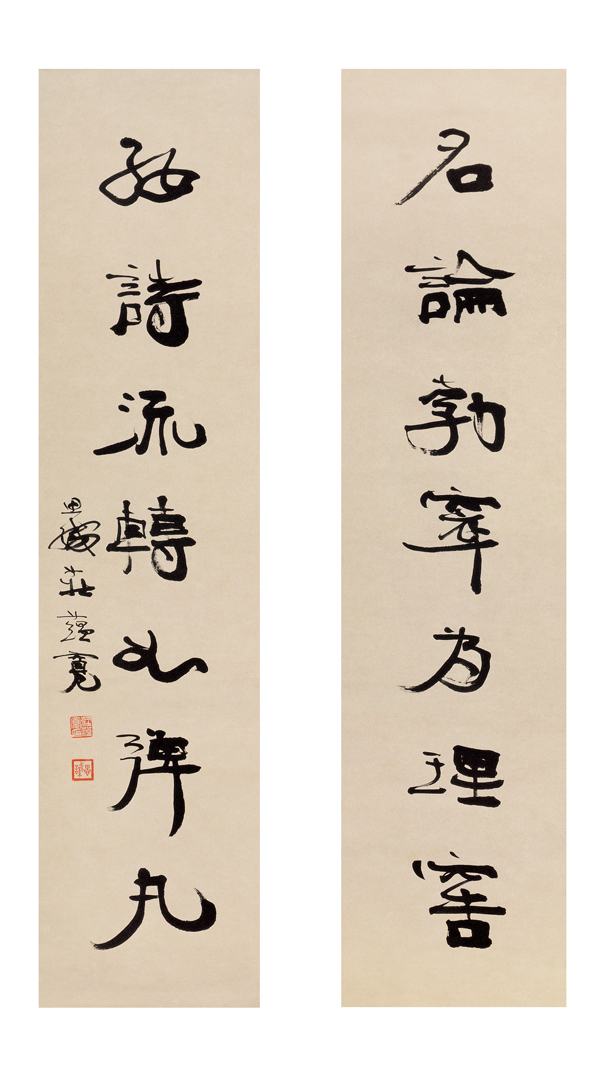 名論勃窣為理窖
好詩流轉如彈丸
思緘莊蘊寬